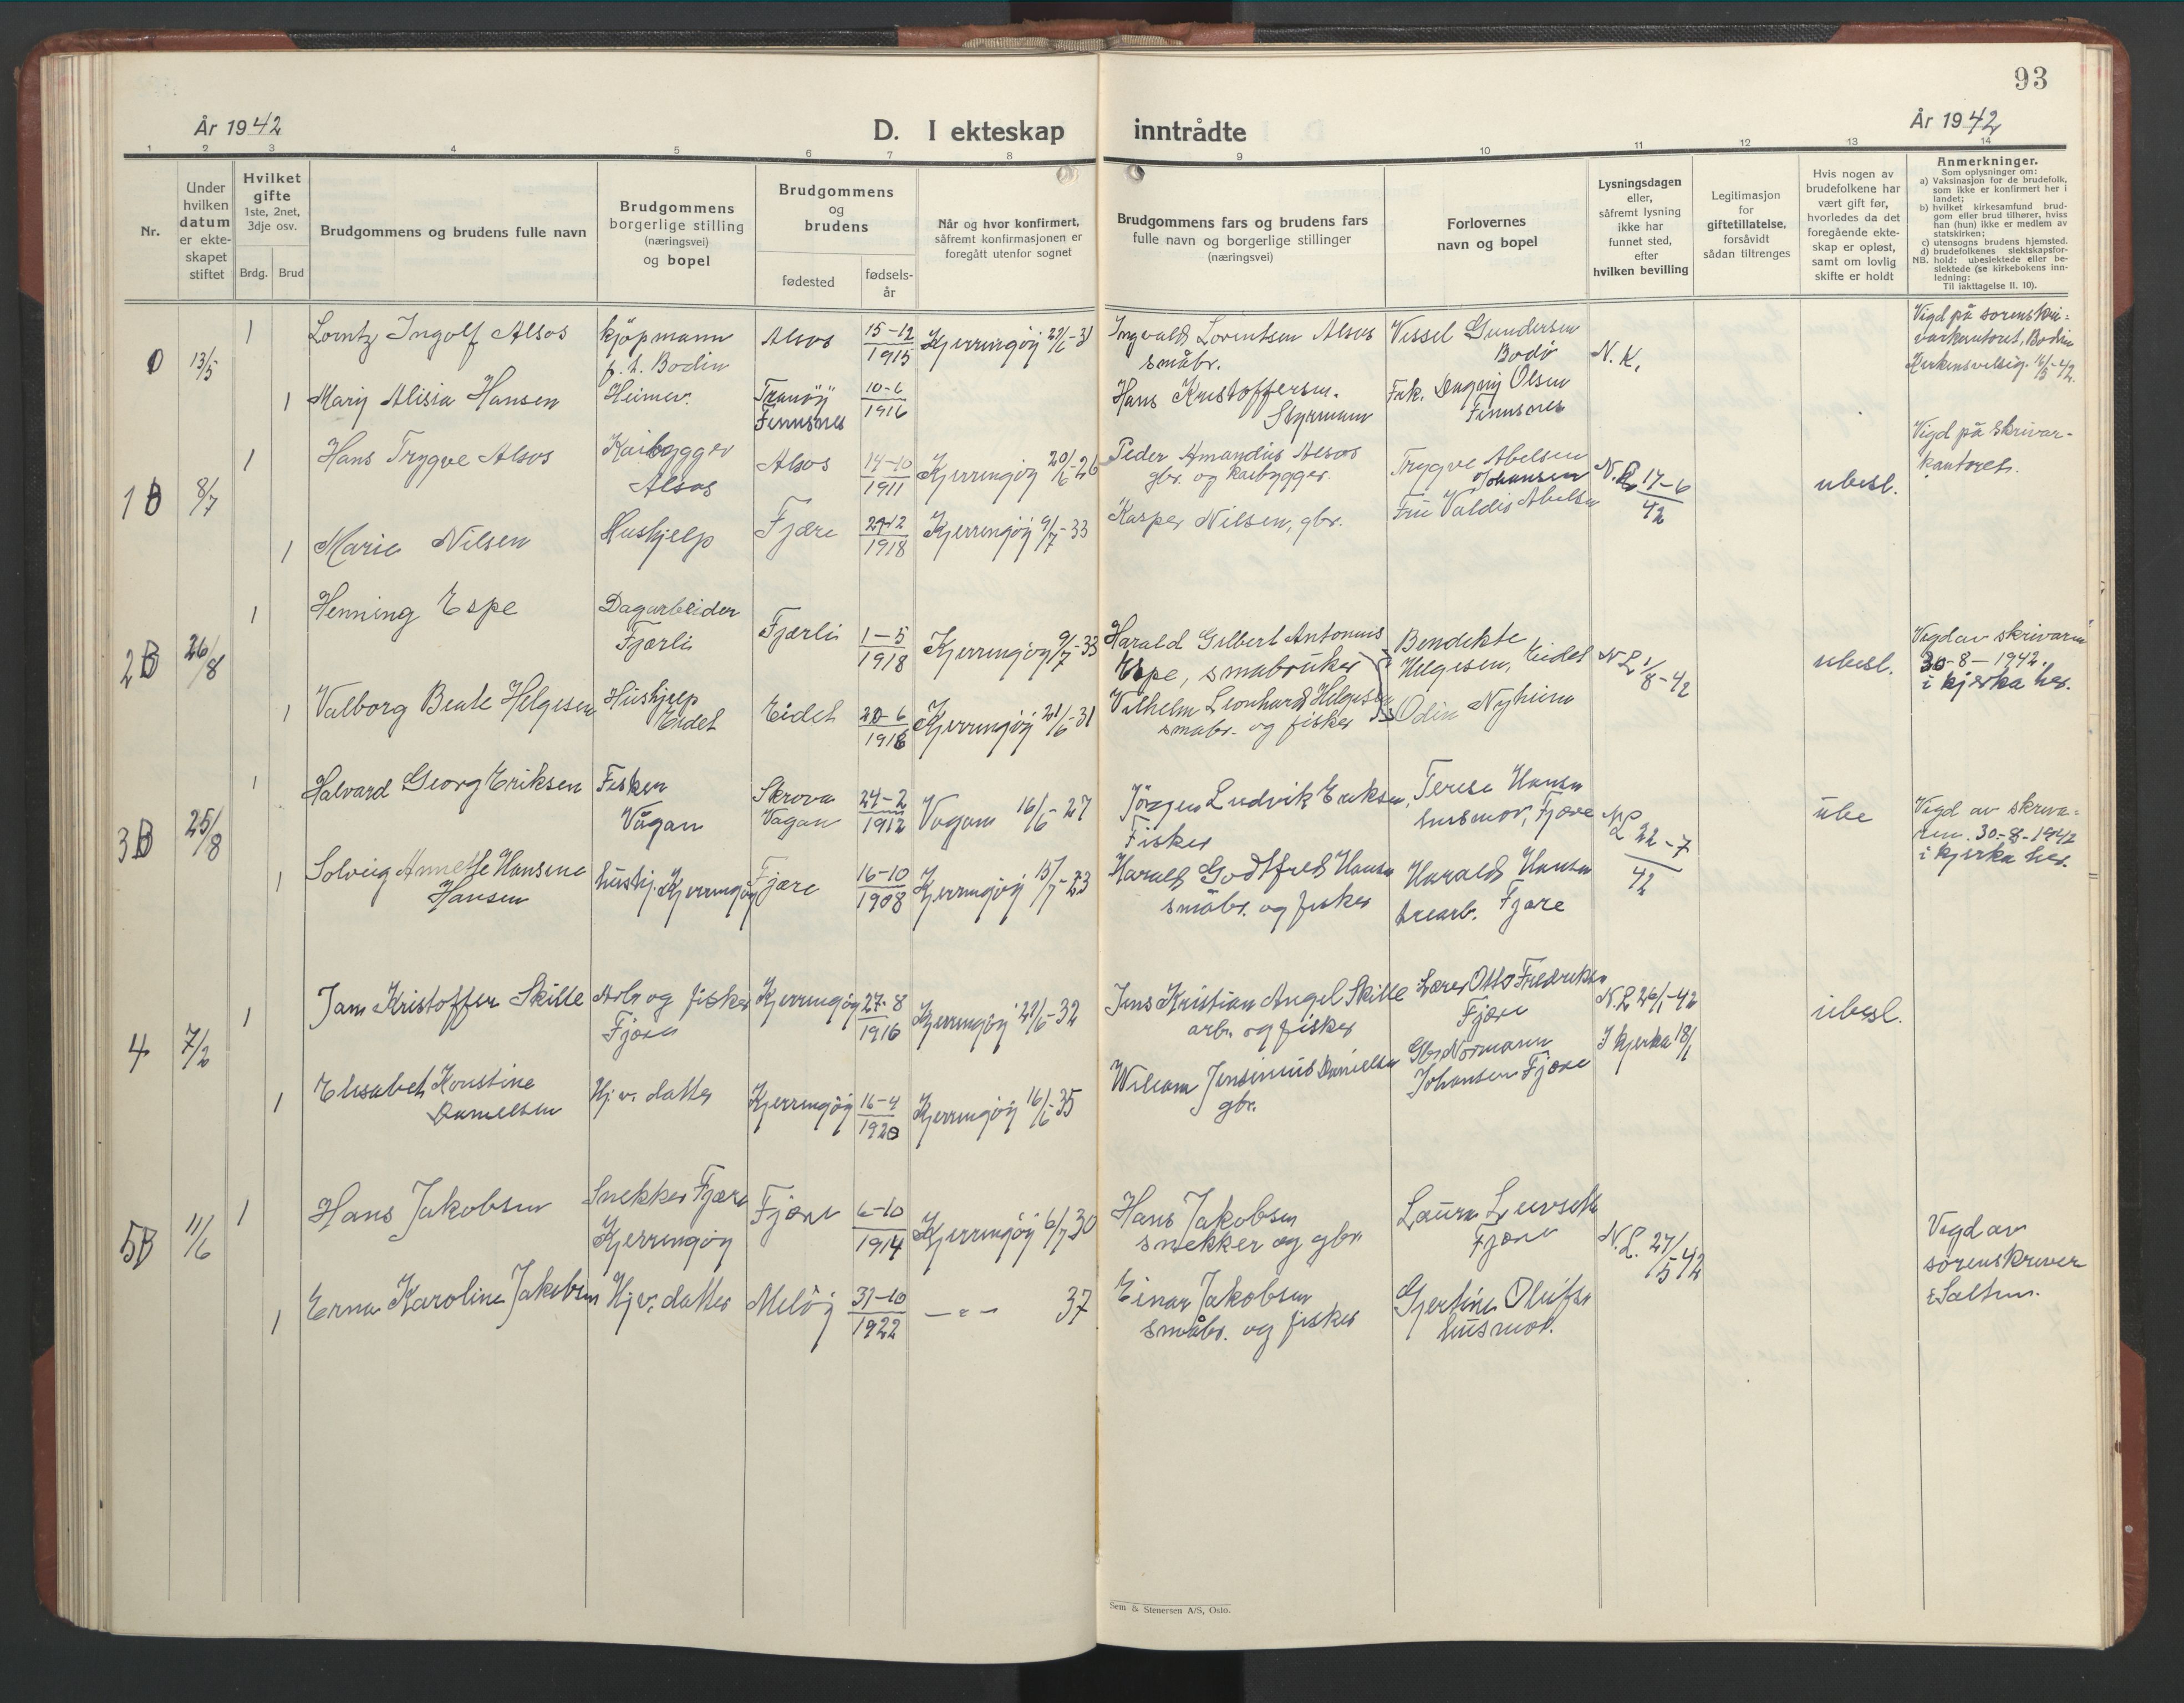 93
År 1942
D. I ekteskap inntrådte
År 1942
1 2 3 4 5 6 7 8 9 10 11 12 13 14
Nr.
Under hvilken datum er ekte-skapet stiftet
Hvilket gifte
1ste, 2net, 3dje osv.
Brdg. Brud
Brudgommens og brudens fulle navn
Brudgommens borgerlige stilling (næringsvei) og bopel
Brudgommens og brudens
fødested
fødsels-år
Når og hvor konfirmert, såfremt konfirmasjonen er foregått utenfor sognet
Brudgommens fars og brudens fars fulle navn og borgerlige stillinger (næringsvei)
Forlovernes navn og bopel
Lysningsdagen eller, såfremt lysning ikke har funnet sted, efter hvilken bevilling
Legitimasjon for giftetillatelse, forsåvidt sådan tiltrenges
Hvis nogen av brudefolkene har vært gift før, hvorledes da det foregående ekte-skap er opløst, samt om lovlig skifte er holdt
Anmerkninger.
Som oplysninger om:
a) Vaksinasjon for de brudefolk, som ikke er konfirmert her i landet;
b) hvilket kirkesamfund brud-gom eller brud tilhører, hviss han (hun) ikke er medlem av statskirken;
c) utensogns brudens hjemsted.
d) brudefolkenes slektskapsfor-hold: ubeslektede eller be-slektede (se kirkebokens inn-ledning:
NB. Til iakttagelse II. 10).
0 13/5 1 Lorntz Ingolf Alsos kjøpmann Alsos 15-12 1915 Kjerringøy 21/6-31 Ingvald Lorentsen Alsos Vessel Gundersen N. K. Vigd på sorenskri-
p. t. Bodin småbr. Bodø varkontoret, Bodin
42.
1 Mary Alisia Hansen Heimev. Tranöy 10-6 1916 Hans Kristoffersen. Frk. Dagny Olsen
Finnsnes Styrmann Finnsnes
1B 8/7 1 Hans Trygve Alsos Kaibygger Alsos 14-10 1911 Kjerringøy 20/6-26 Peder Amandus Alsos Trygve Abelsen N.L. 17-6 42 ubesl. Vigd på skrivar-
Alsos gbr. og kaibygger. Johansen kontoret.
1 Marie Nilsen Hushjelp Fjære 12 1918 Kjerringøy 9/7-33 Kasper Nilsen, gbr. Fru Valdis Abelsen
2B 26/8 1 Henning Espe Dagarbeider Fjærli 1-5 1918 Kjerringøy 9/7-33 Harald Gilbert Antonius Bendikte N L 1/8-42 ubesl. Vigd av skrivaren
Fjærli Espe, småbruker Helgesen, Eidet 30-8-1942.
i kjerka her.
1 Valborg Beate Helgesen Hushjelp Eidet 20-6 1916 Kjerringøy 21/6-31 Vilhelm Leonhard Helgesen Odin Nyheim
Eidet småbr. og fisker
3B 25/8 1 Halvard Georg Eriksen Fisker Skrova 24-2 1912 Vågan 16/6-27 Jörgen Ludvik Eriksen, Terese Hansen N L 22-7 42 ube Vigd av skriva-
Vågan Vågan Fisker husmor, Fjære ren. 30-8-1942
i kjerka her.
1 Solveig Annette Hansine hushj. Kjerringöy Fjære 16-10 1908 Kjerringöy 15/7-23 Harald Godtfred Hansen Harald Hansen
Hansen småbr. og fisker trearb. Fjære
4 7/2 1 Jam Kristoffer Skille Arb. og fisker Kjerringöy 27-8 1916 Kjerringöy 21/6-32 Jens Kristian Angel Skille Lærer Otto Fredriksen N.L 26/1-42 ubesl.
Fjære arb. og fisker Fjære I kjerka 18/1
1 Elisabeth Konstine Hj.v. datter Kjerringöy 16-4 1920 Kjerringöy 16/6-35 Wiliam Jensinius Danielsen Gbr. Normann
Danielsen gbr. Johansen Fjære
5B 11/6 1 Hans Jakobsen Snekker Fjære Fjære 6-10 1914 Kjerringöy 6/7 30 Hans Jakobsen Laura N.L. 27/5 42 Vigd av
Kjerringöy snekker og gbr. Fjære sorenskriver
i Salten.
1 Erna Karoline Jakobsen Hj.v. datter Melöy 31-10 1922 — " — 37 Einar Jakobsen Gjertine Olufsen
småbr. og fisker husmor.
Sem & Stenersen A/S, Oslo.